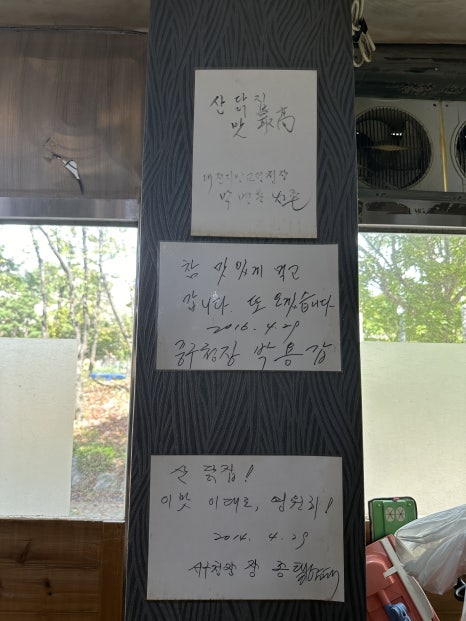 산 닭집
맛 最高
대전지방교정청장
박
참 맛있게 먹고
갑니다. 또 오겠습니다
2016. 4. 29
중구청장 박용갑
산 닭집!
이맛 이대로, 영원히!
2014. 4. 29
서구청장 장종태